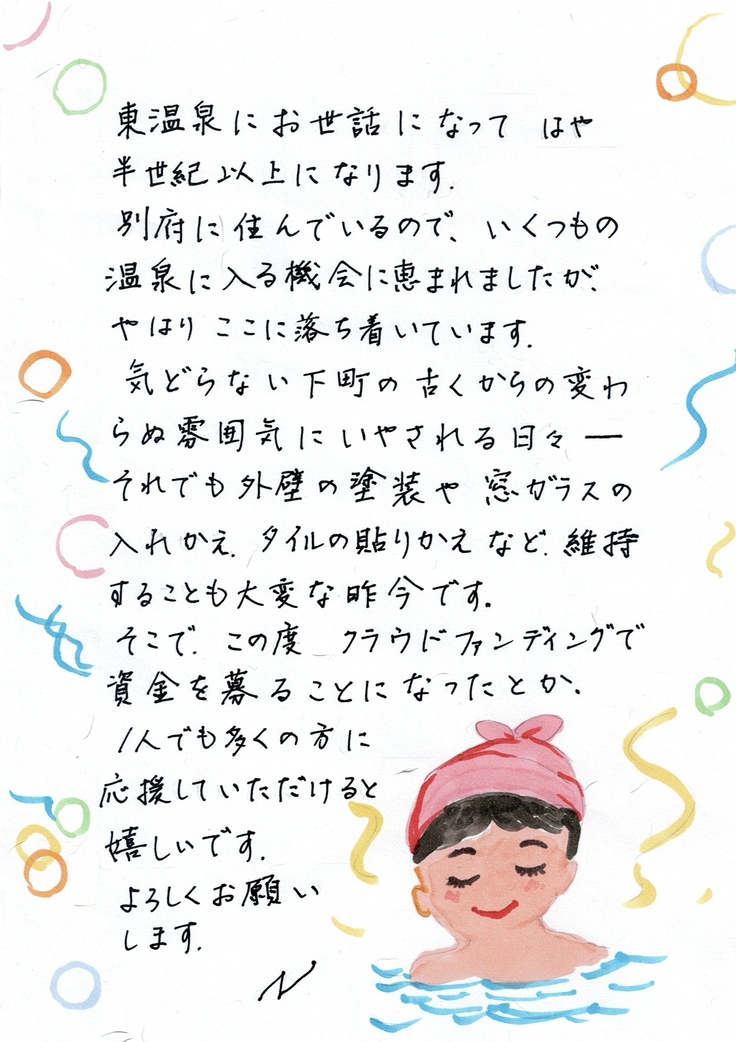 東温泉にお世話になって はや
半世紀以上になります.
別府に住んでいるので、いくつもの
温泉に入る機会に恵まれましたが、
やはり ここに落ち着いています.
気どらない下町の古くからの変わ
らぬ雰囲気にいやされる日々 ー
それでも外壁の塗装や窓ガラスの
入れかえ. タイルの貼りかえなど. 維持
することも大変な昨今です。
そこで. この度 クラウドファンディングで
資金を募ることになったとか.
1人でも多くの方に
応援していただけると
嬉しいです.
よろしくお願い
します.
N